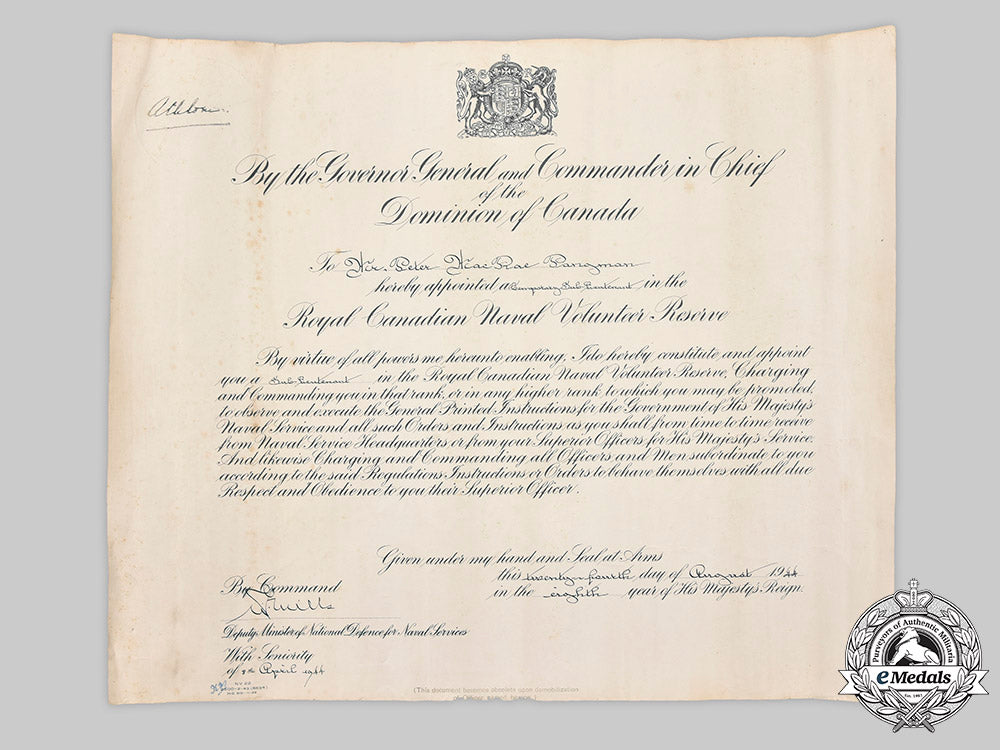 Athlone.
By the Governor General and Commander in Chief
of the
Dominion of Canada
To Mr. Peter MacRae Pangman
hereby appointed a temporary Sub-Lieutenant in the
Royal Canadian Naval Volunteer Reserve
By virtue of all powers me hereunto enabling, I do hereby constitute and appoint
you a Sub-Lieutenant in the Royal Canadian Naval Volunteer Reserve, Charging
and Commanding you in that rank, or in any higher rank to which you may be promoted,
to observe and execute the General Printed Instructions for the Government of His Majesty's
Naval Service and all such Orders and Instructions as you shall from time to time receive
from Naval Service Headquarters or from your Superior Officers for His Majesty's Service.
And likewise Charging and Commanding all Officers and Men subordinate to you
according to the said Regulations Instructions or Orders to behave themselves with all due
Respect and Obedience to you their Superior Officer.
Given under my hand and Seal at Arms
this twenty-fourth day of August 1944
in the eighth year of His Majesty's Reign.
By Command
Deputy Minister of National Defence for Naval Services
With Seniority
of April 1944
(This document becomes obsolete upon demobilization
Purveyors of Authentic Militaria
eMedals